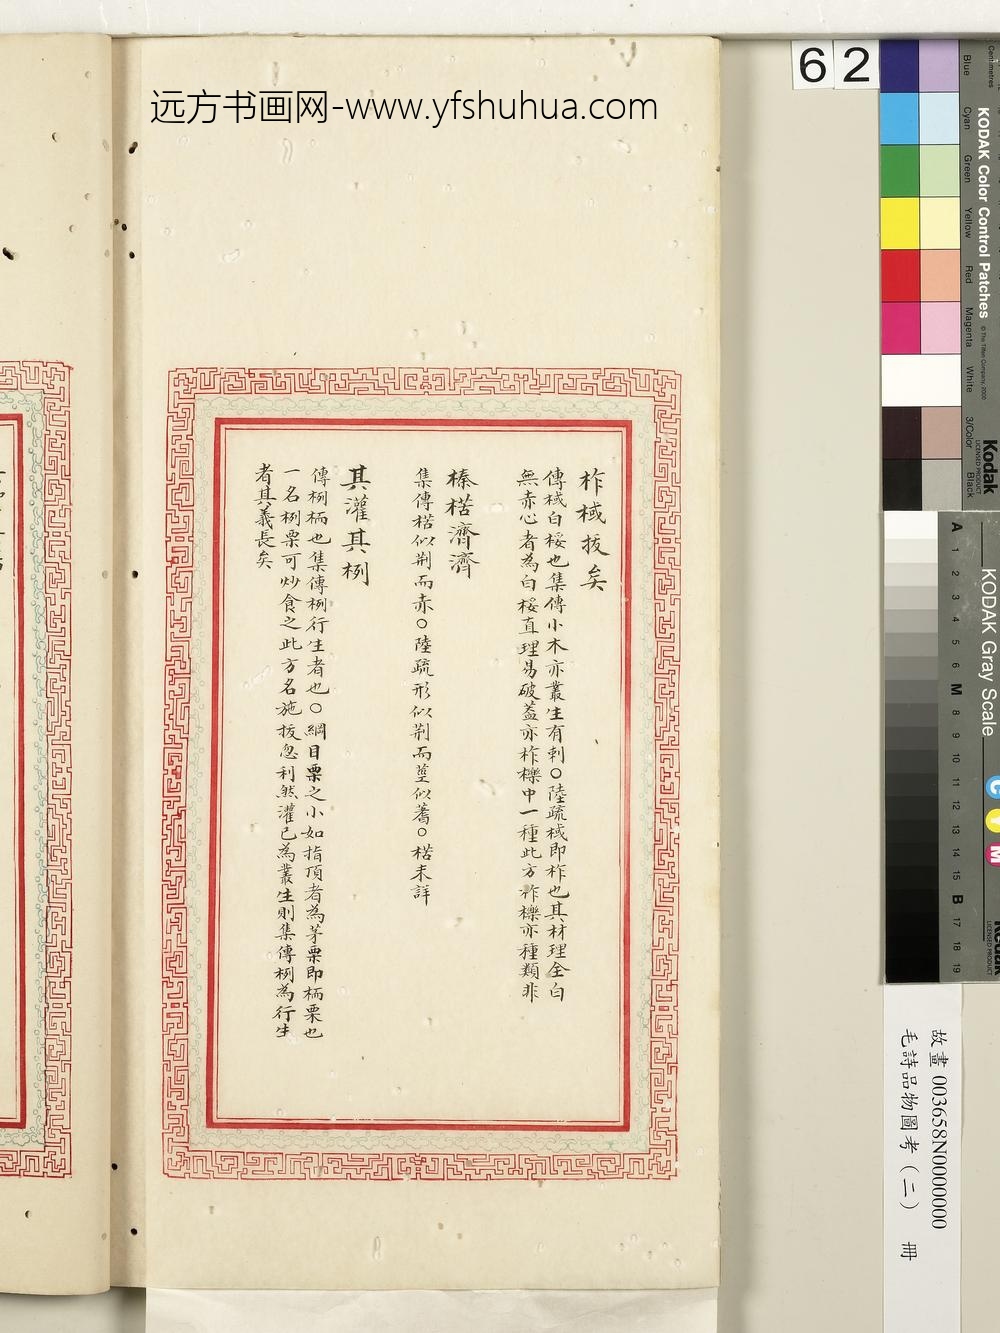 远方书画网-www.yfshuhua.com
62
柞棫拔矣
傳棫白桵也集傳小木亦叢生有刺○陸疏棫即柞也其材理全白
無赤心者為白桵直理易破蓋亦柞櫟中一種此方柞櫟亦種類非
榛楛濟濟
集傳楛似荆而赤○陸疏形似荆而莖似蓍○楛未詳
其灌其栵
傳栵栭也集傳栵行生者也○綱目栗之小如指頂者為茅栗即栭栗也
一名栵栗可炒食之此方名施拔忽利然灌已為叢生則集傳栵為行生
者其義長矣
故畫 003658N0000000
毛詩品物圖考（二） 冊
Centimetres
KODAK Color Control Patches
© The Tiffen Company, 2000
Blue
Cyan
Green
Yellow
Red
Magenta
White
3/Color
Black
Kodak
LICENSED PRODUCT
KODAK Gray Scale
A 1 2 3 4 5 6 M 8 9 10 11 12 13 14 15 B 17 18 19
C
Y
M
Kodak
LICENSED PRODUCT